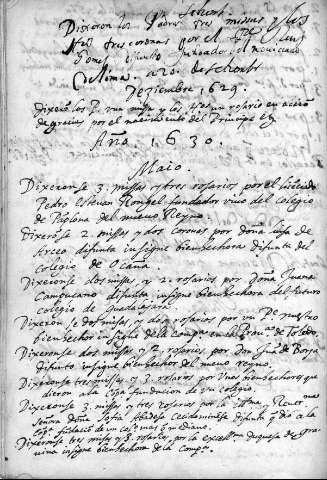 Dixeron los Pes Padres tres missas y los
Hos tres coronas por el
Gomez fundador del noviciado
de lima. a 20. de septiembre
Deziembre 1629.
dixerõ los P. una missa y los Hos un rosario en acciõ
de gracias por el nacimiento del Principe
Año 1630.
Maio.
Dixeronse 3. missas o tres rosarios por el licdo
Pedro Estevan Rongel fundador vivo del colegio
de Pãplona del nuevo Reyno.
Dixerõse 2. missas y dos coronas por doña luisa de
Arceo difunta insigne bienhechora difunta del
colegio de Ocaña.
Dixeronse dos missas, y 2. rosarios por doña Juana
Campuçano difunta insigne bienhechora del futuro
colegio de Guadalaxara.
Dixerõnse dos missas, y dos rosarios por un Pe nuestro
bienhechor insigne de la compa en la Prouª de Toledo.
Dixeronse dos missas y 2. rosarios por Don Juº de Borja
difunto insigne bienhechor del nuevo reyno.
Dixeronse tres missas y 3. rosarios por unos bienhechores que
dieron a la Compª fundacion de un colegio.
Dixeronse 3. missas y tres rosarios por la
señora doña Sofia Abadesa difunta q̃ dio a la
Compª fũdaciõ de un
Dixeronse tres missas y 3. rosarios, por la excellma duquesa de gra
uina insigne bienhechora de la Compª.